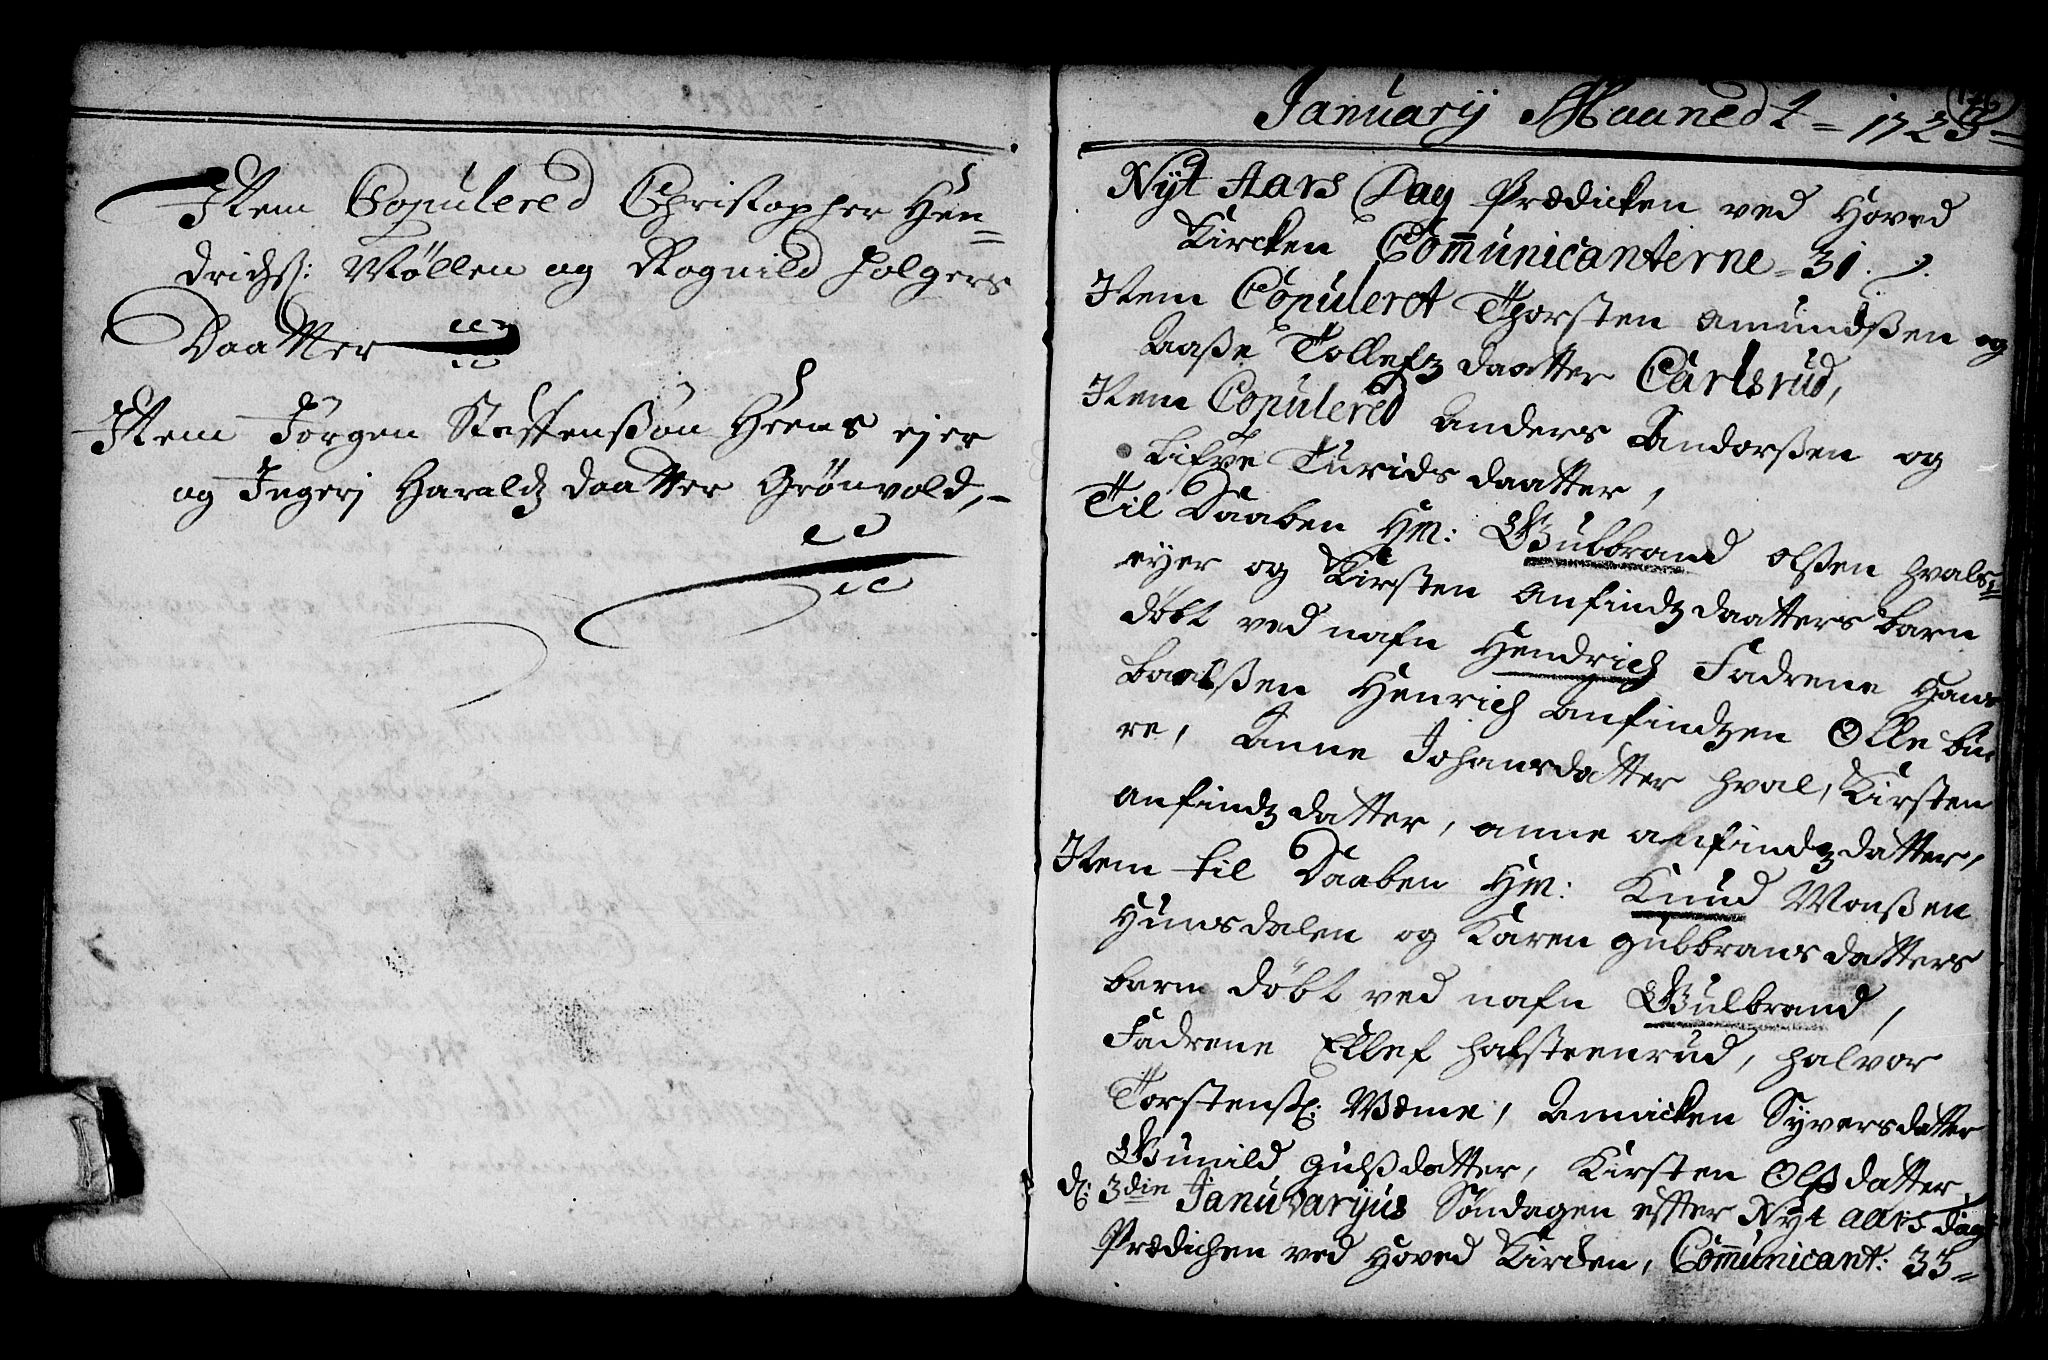 Item Copulered Christopher Hen=
drichs: Møllen og Rognild Holgers
Daatter
Item Jörgen Staffensøn Hrens ejer
og Ingerj Haraldz daatter Grönvold,
Januarij Maaned 1 = 1723
Nÿt Aars Dag Prædicken ved Hoved
Kircken Com̅unicanterne = 31.
Item Copuleret Thorsten Amundßen og
Aaße Tollefz daatter Carlsrud,
Item Copulered Anders Andorßen og
Lifve Turids daatter,
Til Daaben Hm: Gulbrand Olßen Hvals=
eyer og Kirsten Anfindz daatters barn
döbt ved nafn Hendrich Fadrene Hans
Henrich Anfindzen Olle bu
re, Anne Johansdatter Hval, Kirsten
Anfindz datter, Anne Anfindz datter,
Item til Daaben Hm: Knud Monßen
Hunsdalen og Karen Gulbransdatters
barn döbt ved nafn Gulbrand,
Fadrene Ellef Halsteenrud, Halvor
Torstenß: Wæme, Annicken Syversdatter
Gunild Gulßdatter, Kirsten Olßdatter
d: 3die Januvarijus Söndagen effter Nyt Aars Dag
Prædichen ved Hoved Kircken, Com̅unicant: 33=